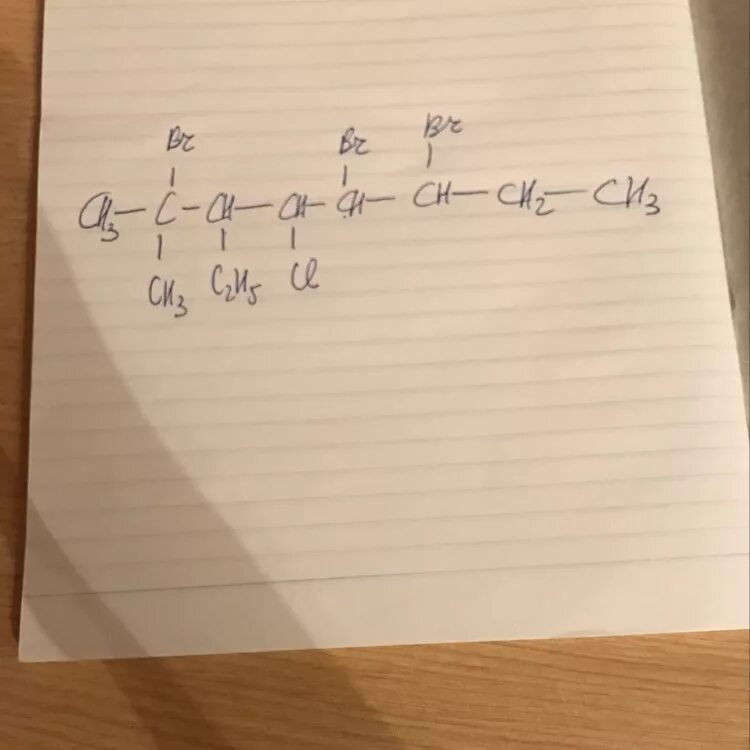 Br Br Br
CH3—C-CH—CH-CH—CH—CH2—CH3
CH3 C2H5 Cl